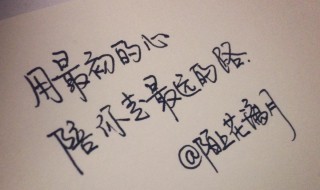 用最初的心
陪你走最远的路.
@陌上花满月